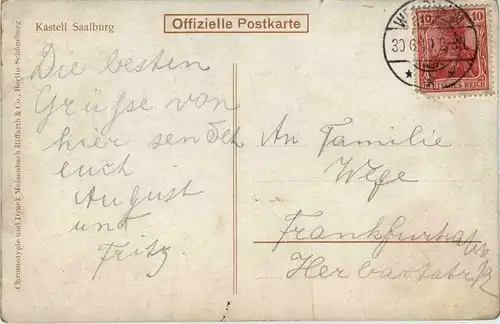 Kastell Saalburg
Offizielle Postkarte
30.6.
10 10
DEUTSCHES REICH
Die besten
Grüße von
hier sendet
euch
August
und
Fritz.
An Familie
Frankfurt a/M
Herbartstr.
Chromotypie und Druck Meisenbach Riffarth & Co., Berlin-Schöneberg